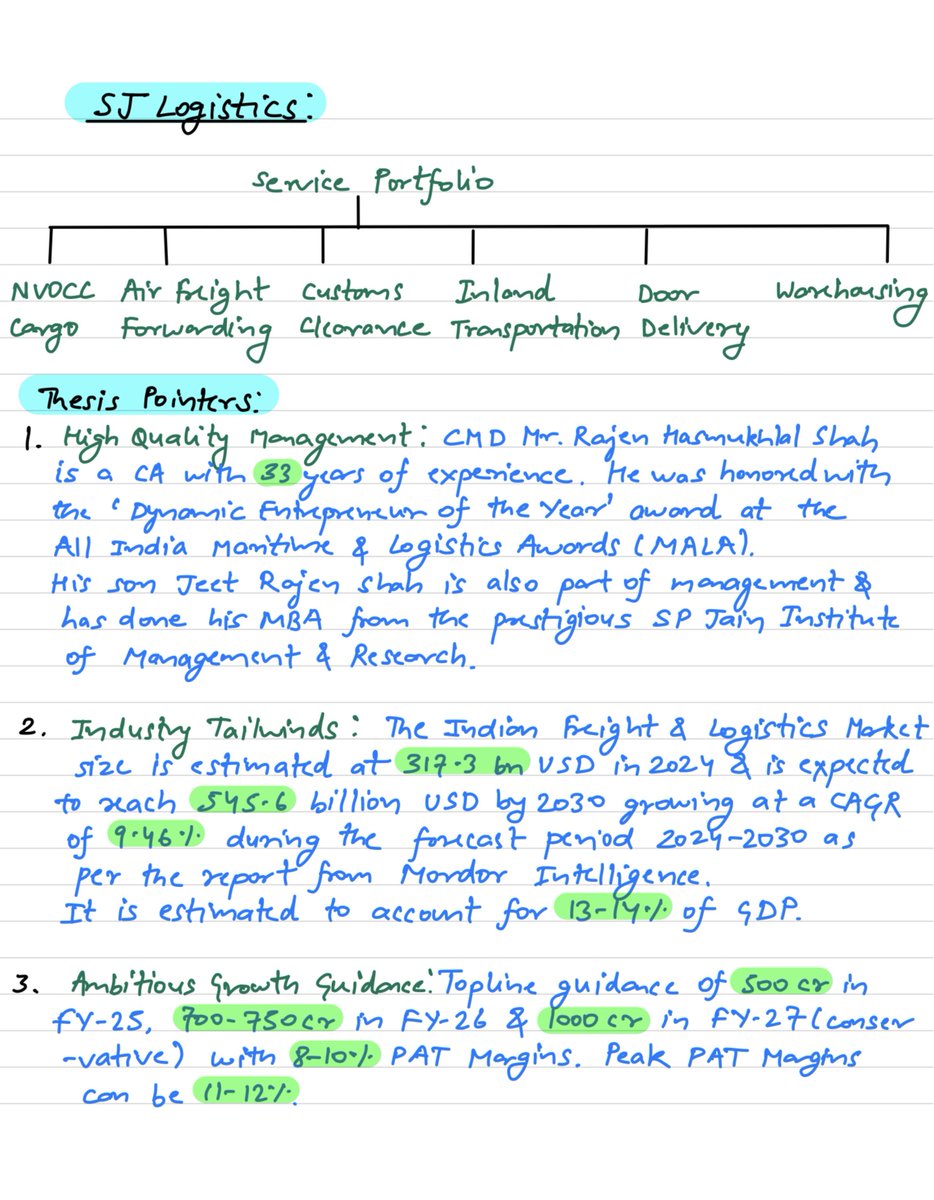 SJ Logistics:
Service Portfolio
NVOCC Cargo
Air freight Forwarding
Customs Clearance
Inland Transportation
Door Delivery
Warehousing
Thesis Pointers:
1. High Quality Management: CMD Mr. Rajen Hasmukhlal Shah
is a CA with 33 years of experience. He was honored with
the 'Dynamic Entrepreneur of the Year' award at the
All India Maritime & Logistics Awards (MALA).
His son Jeet Rajen Shah is also part of management &
has done his MBA from the prestigious SP Jain Institute
of Management & Research.
2. Industry Tailwinds: The Indian Freight & Logistics Market
size is estimated at 317.3 bn USD in 2024 & is expected
to reach 545.6 billion USD by 2030 growing at a CAGR
of 9.46% during the forecast period 2024-2030 as
per the report from Mordor Intelligence.
It is estimated to account for 13-14% of GDP.
3. Ambitious Growth Guidance: Topline guidance of 500 cr in
FY-25, 700-750 cr in FY-26 & 1000 cr in FY-27 (conser
-vative) with 8-10% PAT Margins. Peak PAT Margins
can be 11-12%.